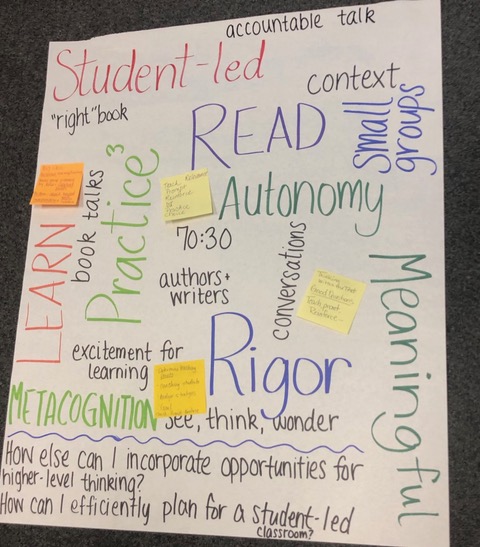 accountable talk
Student-led
context
"right" book
READ
small
groups
Practice³
book talks
LEARN
Autonomy
70:30
conversations
authors+
writers
Meaningful
excitement for
learning
Rigor
METACOGNITION
see, think, wonder
How else can I incorporate opportunities for
higher-level thinking?
How can I efficiently plan for a student-led
classroom?